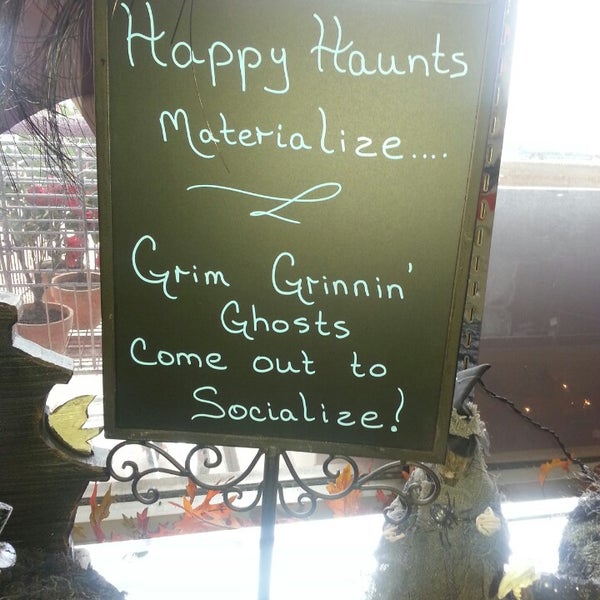 Happy Haunts
Materialize....
Grim Grinnin'
Ghosts
Come out to
Socialize!